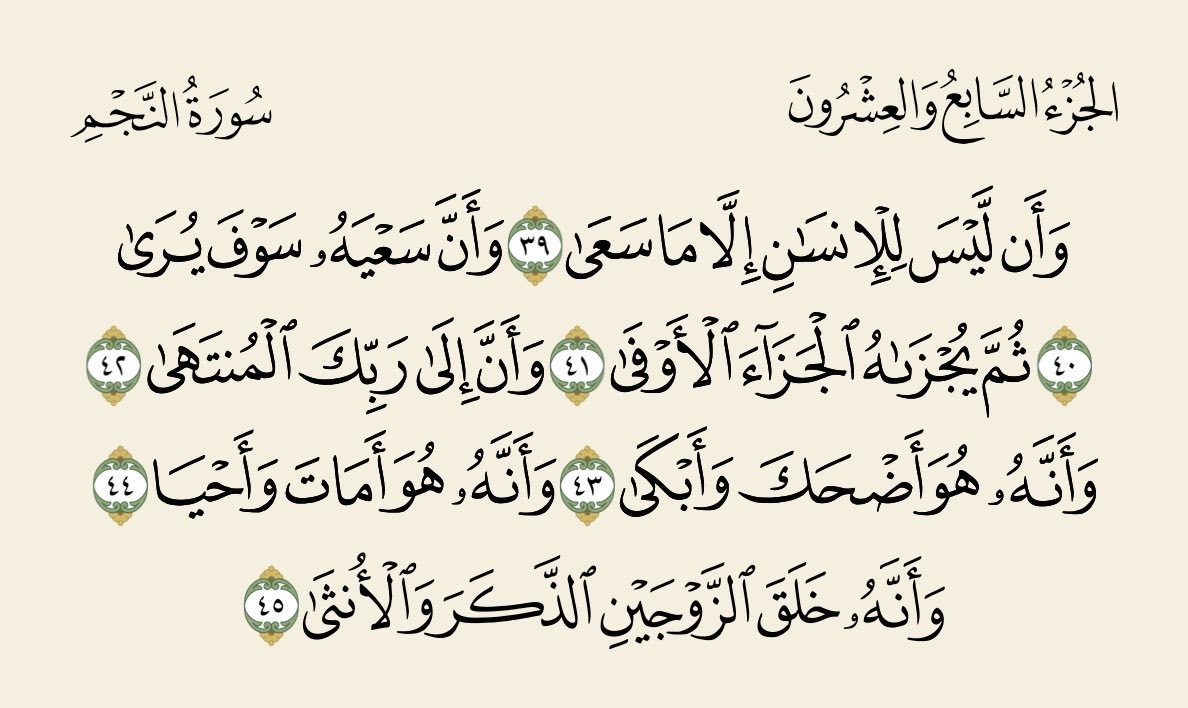 الجُزْءُ السَّابِعُ وَالعِشْرُونَ
سُورَةُ النَّجْمِ
وَأَن لَّيْسَ لِلْإِنسَٰنِ إِلَّا مَا سَعَىٰ ٣٩ وَأَنَّ سَعْيَهُۥ سَوْفَ يُرَىٰ
٤٠ ثُمَّ يُجْزَىٰهُ ٱلْجَزَآءَ ٱلْأَوْفَىٰ ٤١ وَأَنَّ إِلَىٰ رَبِّكَ ٱلْمُنتَهَىٰ ٤٢
وَأَنَّهُۥ هُوَ أَضْحَكَ وَأَبْكَىٰ ٤٣ وَأَنَّهُۥ هُوَ أَمَاتَ وَأَحْيَا ٤٤
وَأَنَّهُۥ خَلَقَ ٱلزَّوْجَيْنِ ٱلذَّكَرَ وَٱلْأُنثَىٰ ٤٥